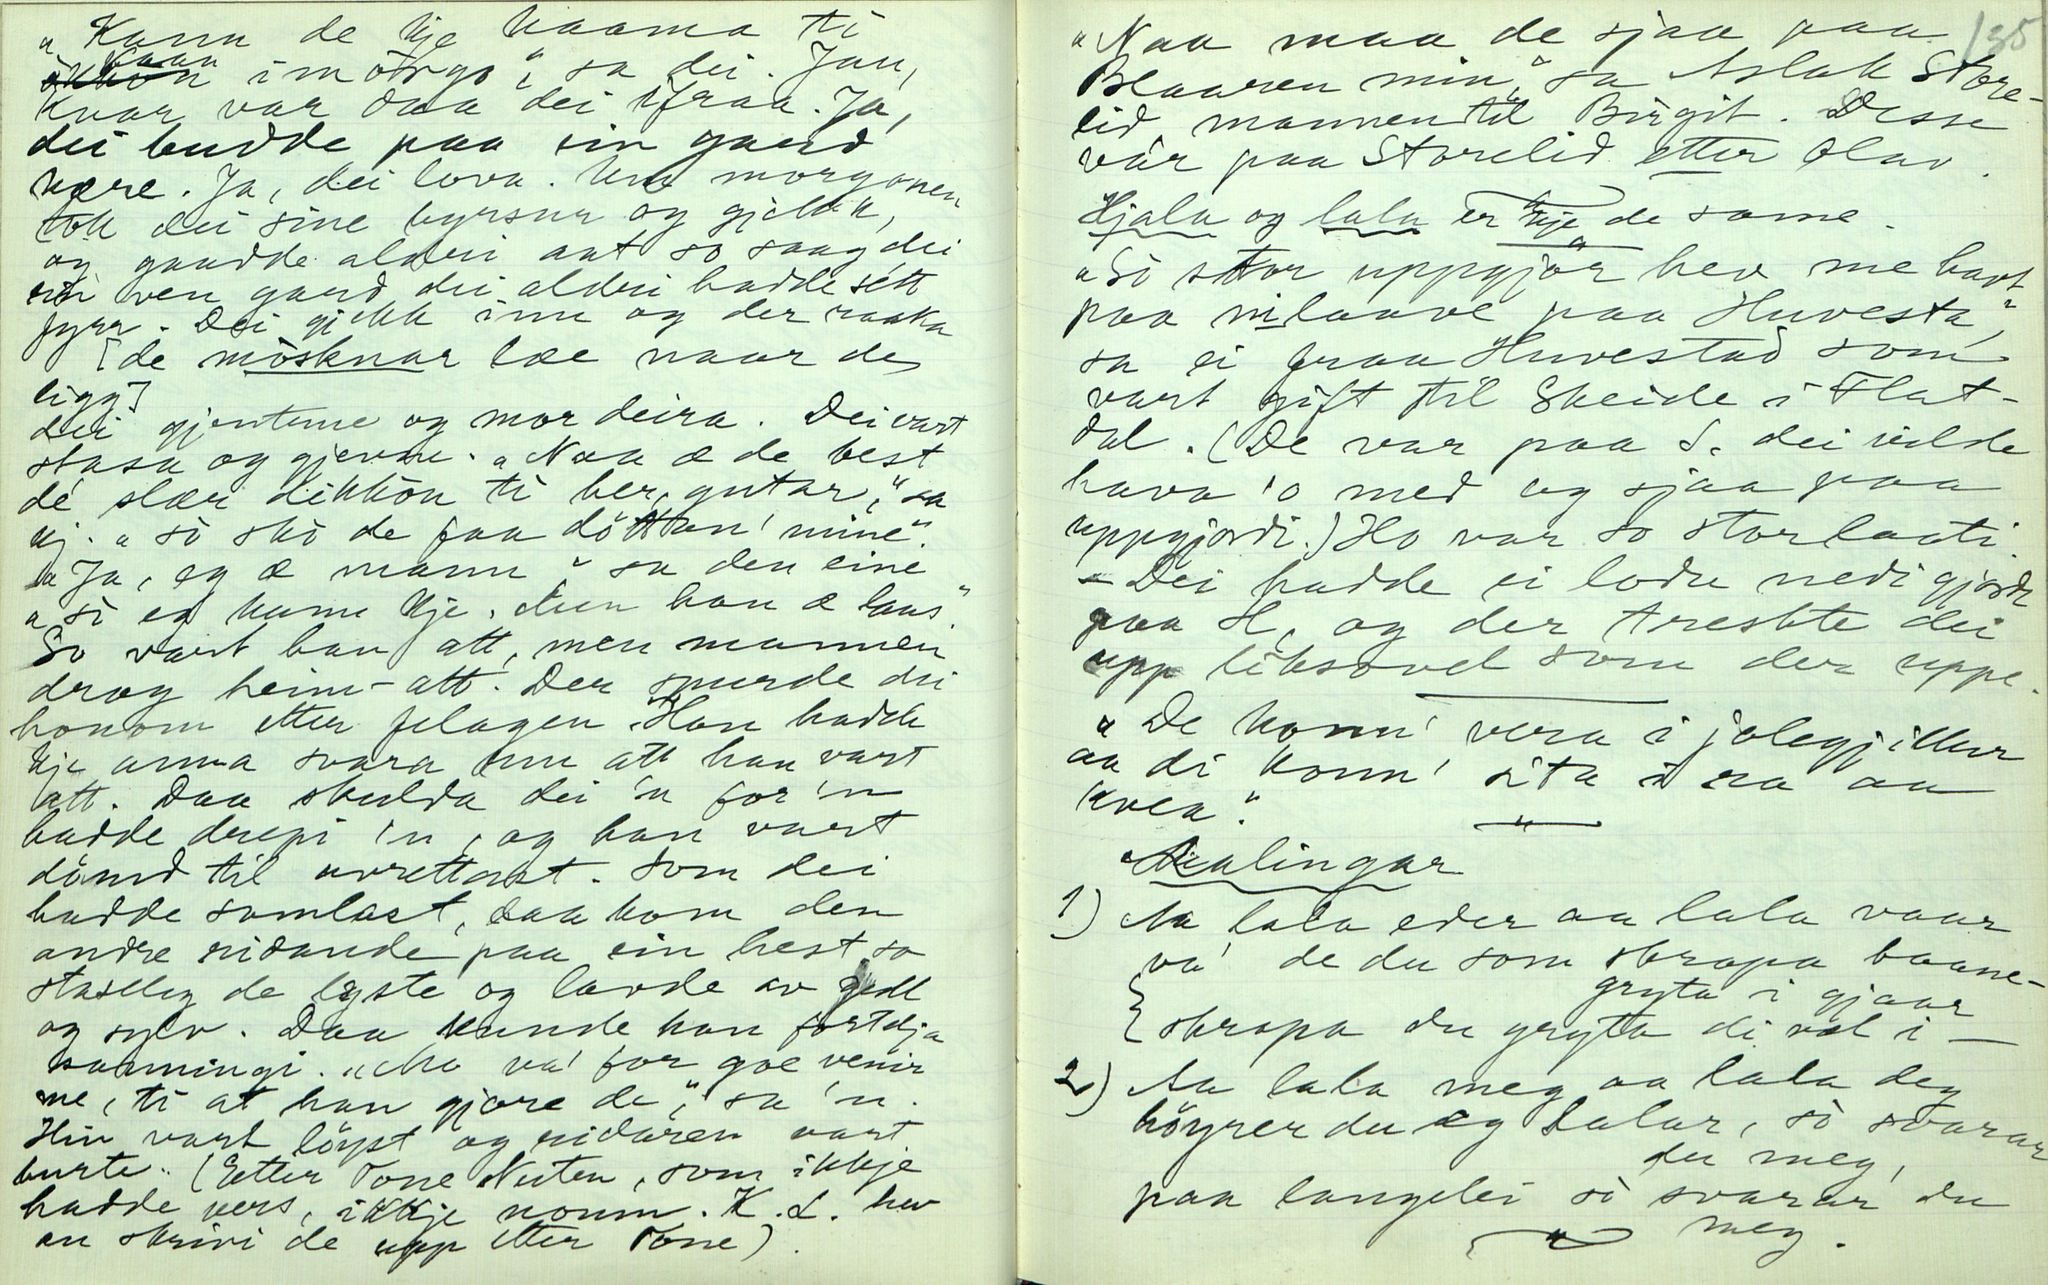 "Kann de kje kaama ti
kaan i mòrgo", sa dei. Jau,
kvar var daa dei ifraa. Ja,
dei budde paa ein gard
nære. Ja, dei lova. Um morgonen
tok dei sine byrsur og gjekk,
og gaadde aldri aat so saag dei
ein ven gard dei aldri hadde sétt
fyrr. Dei gjekk inn og der raaka
[de mòsknar læe naar de
ligg]
dei gjentune og mor deira. Dei vart
stasa og gjevne. "Naa æ de best
dé slær dikkòn ti her, gutar," sa
kj. "sò skò de faa dòttan' mine".
"Ja, eg æ mann" sa den eine
"sò eg kann kje. Men han æ laus."
So vart han att, men mannen
drog heim-att. Der spurde dei
honom etter felagen. Han hadde
kje anna svara enn att han vart
att. Daa skulda dei 'n for 'n
hadde drepi 'n, og han vart
dømd til avrettast. Som dei
hadde somlast, daa kom den
andre ridande paa ein hest so
stasleg de lyste og lavde av gull
og sylv. Daa kunde han fortelja
sanningi. "Mo va' for goe venir
me, ti at han gjore de," sa 'n.
Hin vart løyst og ridaren vart
burte. (Etter Tone Nuten, som ikkje
hadde vers, ikkje nomn. K. L. hev
au skrivi de upp etter Tone).
135
"Naa maa de sjaa paa
Blaaren min," sa Aslak Store-
lid, mannen til Birgit. Desse
vár paa Storelid etter Olav.
Hjala og lala er kje de same.
"Sò stor uppgjør hev me havt
paa nilaave paa Huvesta",
sa ei fraa Huvestad som
vart gift til Skeide i Flat-
dal. (De var paa S. dei vilde
hava 'o med og sjaa paa
uppgjordi.) Ho var so storlaati.
- Dei hadde ei lodu nedi gjorde
paa H, og der treskte dei
upp liksovel som der uppe.
"De konn' vera i jolegjikkur
aa di konn' sita i ra aa
kvea".
Lalingar
1) Aa lala eder aa lala vaar
va' de du som skrapa baane-
gryta i gjaar
{ skrapa du gryta di vel i —
2) Aa lala meg aa lala deg
høyrer du eg lalar, sò svarar
du meg,
paa langelei sò svarar du
meg.